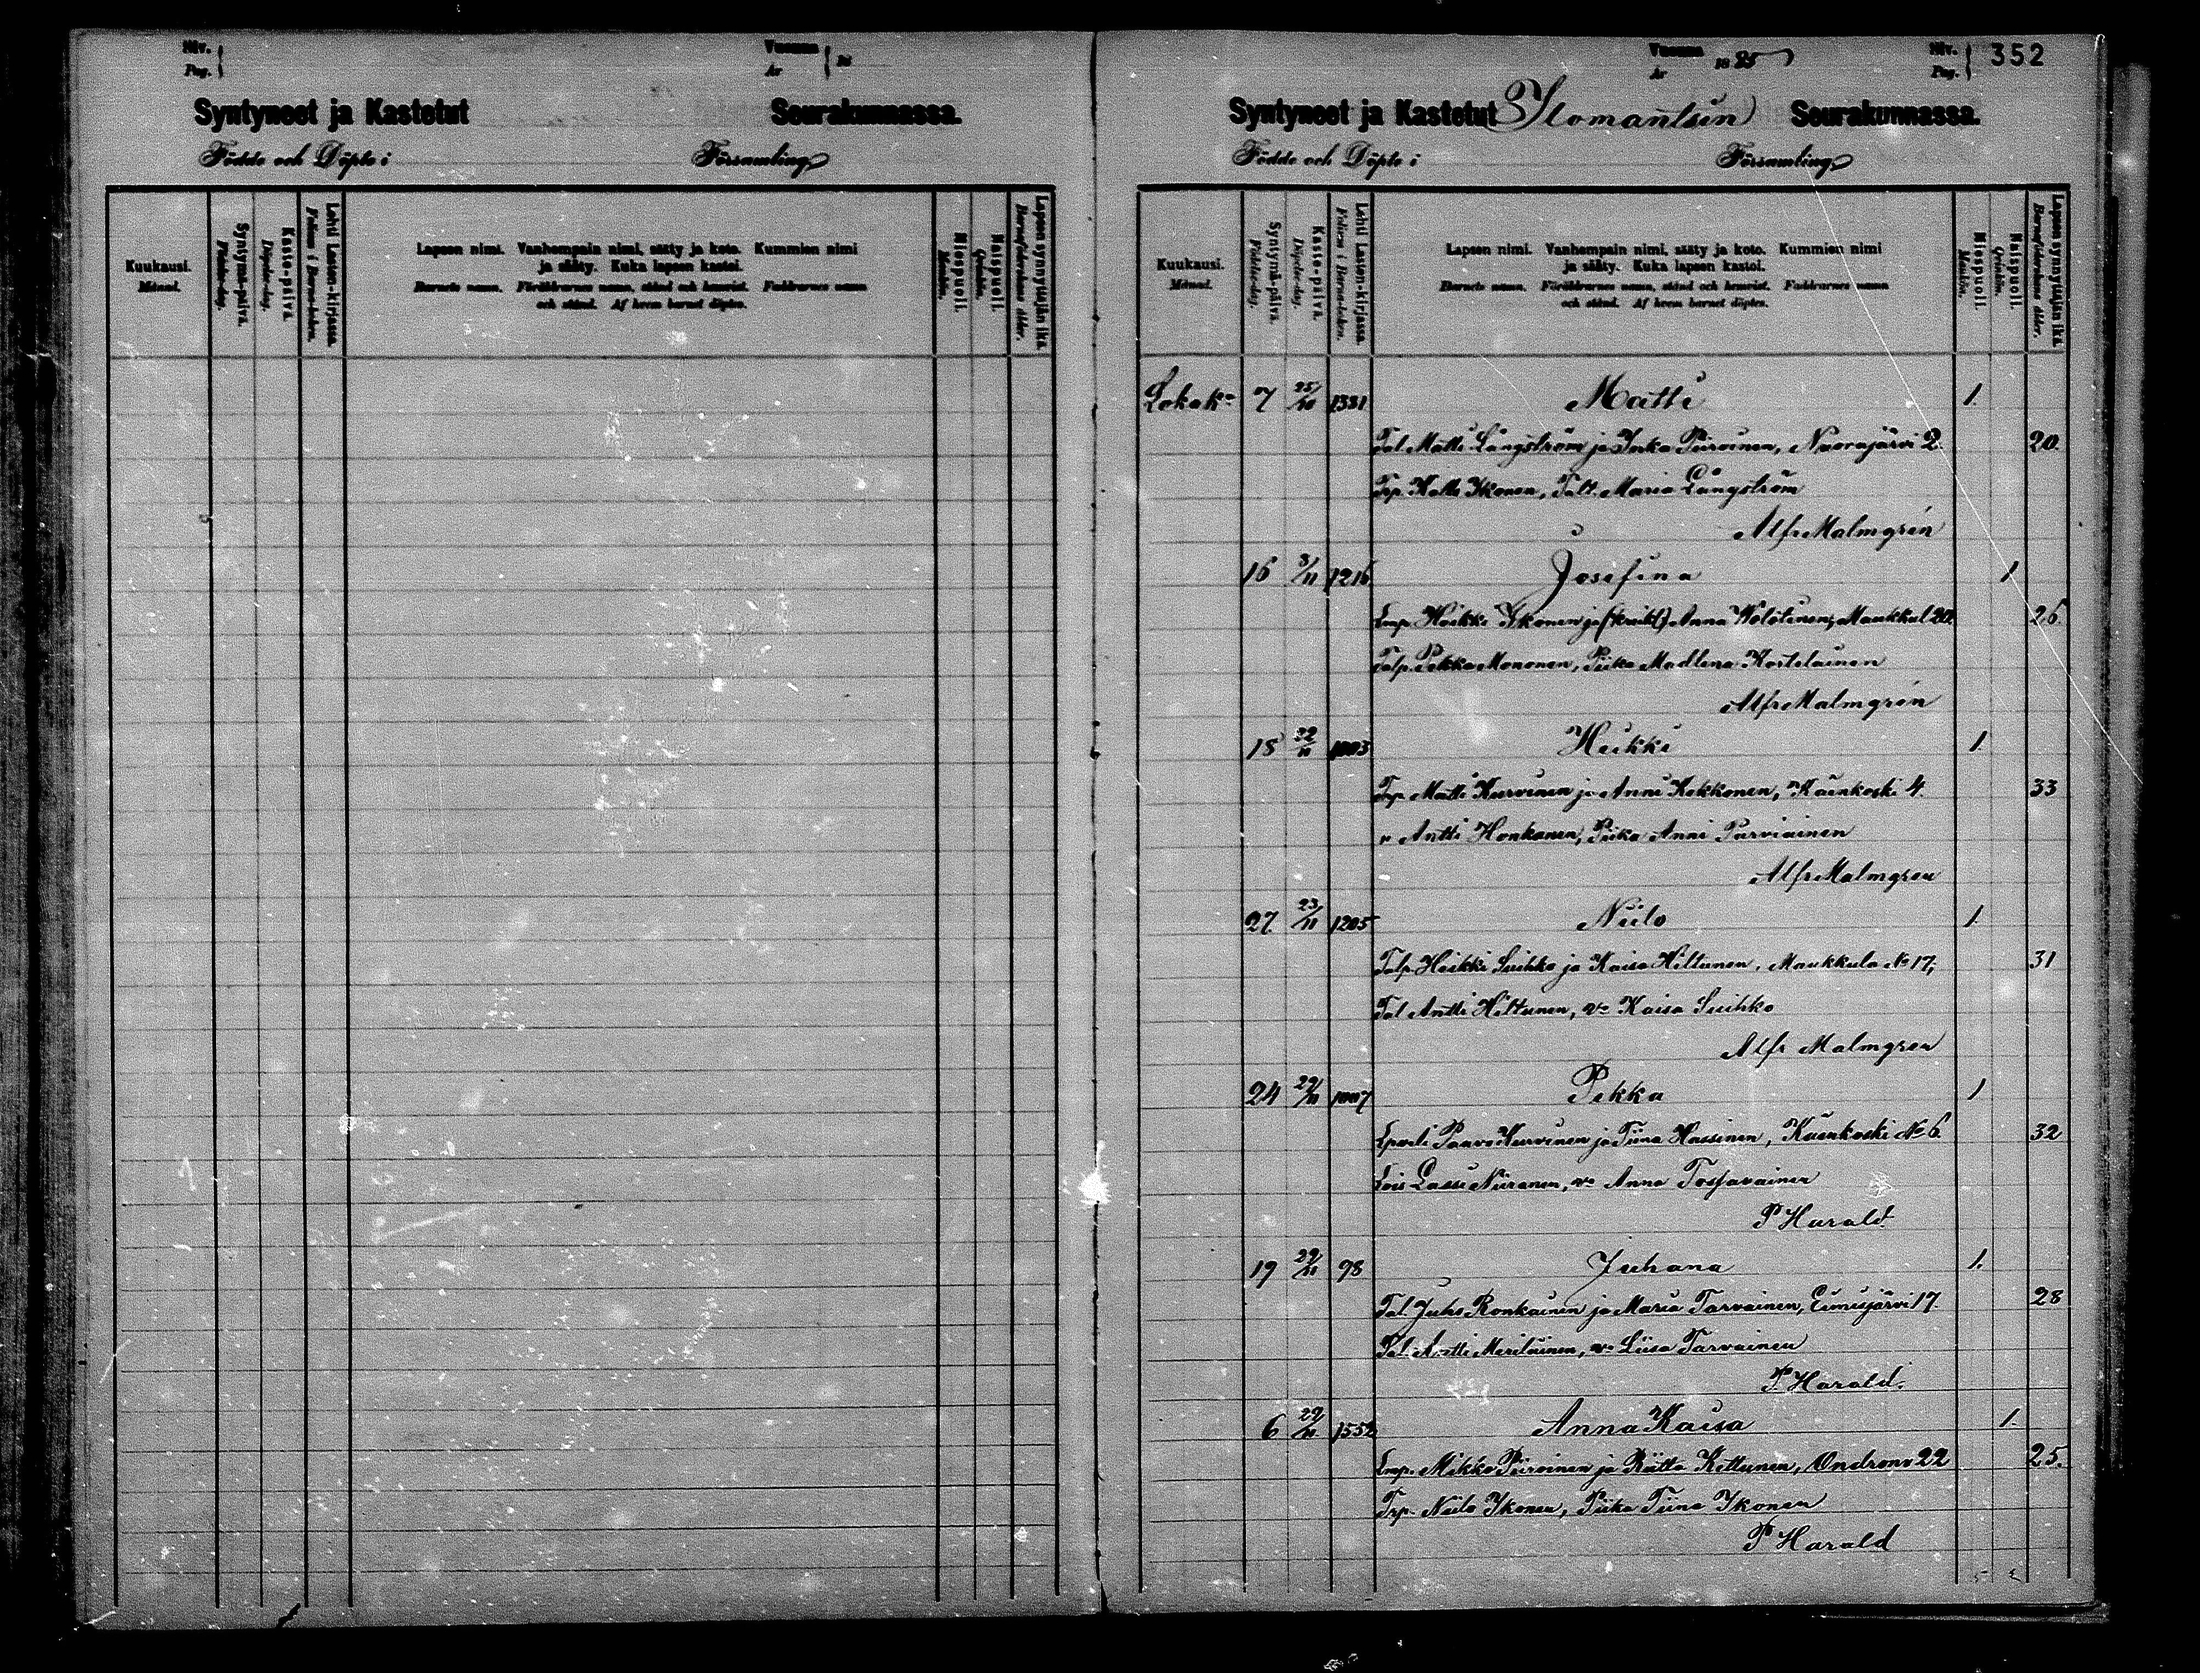 Siv.
Pag.
Vuonna
År
18
Syntyneet ja Kastetut Seurakunnassa.
Födde och Döpte i Församling
Kuukausi.
Månad.
Syntymä-päivä.
Födelse-dag.
Kaste-päivä.
Döpelse-dag.
Lehti Lasten-kirjassa.
Folium i Barna-boken.
Lapsen nimi. Vanhempain nimi, sääty ja koto. Kummien nimi
ja sääty. Kuka lapsen kastoi.
Barnets namn. Föräldrarnes namn, stånd och hemvist. Faddrarnes namn
och stånd. Af hvem barnet döptes.
Miespuoli.
Mankön.
Naispuoli.
Qvinkön.
Lapsen synnyttäjän ikä.
Barnaföderskans ålder.
Vuonna
År
1885
Siv.
Pag.
352
Syntyneet ja Kastetut Ilomantsin Seurakunnassa.
Födde och Döpte i Församling
Kuukausi.
Månad.
Syntymä-päivä.
Födelse-dag.
Kaste-päivä.
Döpelse-dag.
Lehti Lasten-kirjassa.
Folium i Barna-boken.
Lapsen nimi. Vanhempain nimi, sääty ja koto. Kummien nimi
ja sääty. Kuka lapsen kastoi.
Barnets namn. Föräldrarnes namn, stånd och hemvist. Faddrarnes namn
och stånd. Af hvem barnet döptes.
Miespuoli.
Mankön.
Naispuoli.
Qvinkön.
Lapsen synnyttäjän ikä.
Barnaföderskans ålder.
Lokak. 7 25/10 1381 Matti 1.
Tal. Matti Långström ja Inka Piiroinen, Nuorajärvi 2. 20.
Trp. Kalle Ikonen, Talt. Maria Långström
Alfr Malmgrén
16 3/11 1216 Josefina 1
Lmp. Heikki Ikonen ja (kreikk) Anna Wolotinen, Maukkul 20. 26.
Talp. Pekka Mononen, Piika Madlena Kortelainen
Alfr Malmgrén
18 22/11 1003 Heikki 1.
Trp. Matti Kurvinen ja Anni Kokkonen, Käenkoski 4. 33
" Antti Honkanen, Piika Anni Parviainen
Alfr Malmgren
27. 23/11 1205 Niilo 1.
Talp. Heikki Suihko ja Kaisa Hiltunen, Maukkula No 17, 31
Tal Antti Hiltunen, vo Kaisa Suihko
Alfr Malmgren
24 29/11 1007 Pekka 1
Paavo Kurvinen ja Tiina Hassinen, Käenkoski No 6. 32
Lois Lassi Niiranen, vo Anna Tossavainen
P Harald.
19 29/11 98 Juhana 1.
Tal. Juho Ronkainen ja Maria Tarvainen, Eimisjärvi 17. 28
Tal. Antti Meriläinen, vo Liisa Tarvainen
P. Harald.
6 29/11 1552 Anna Kaisa 1.
Lmp. Mikko Piiroinen ja Riitta Kettunen, Ondronv 22 25.
Trp. Niilo Ikonen, Piika Tiina Ikonen
P Harald
5 2